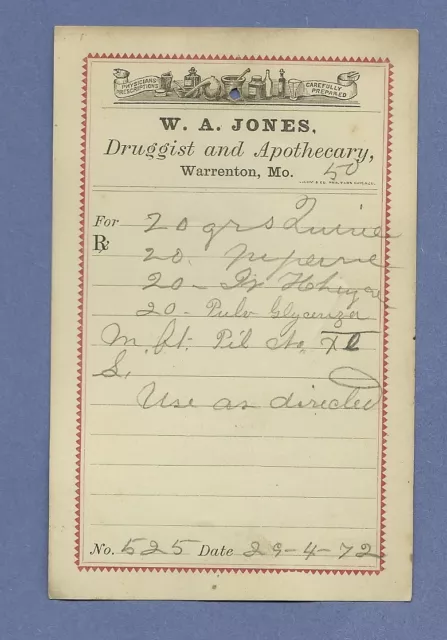 PHYSICIANS PRESCRIPTIONS
CAREFULLY PREPARED
W. A. JONES,
Druggist and Apothecary,
Warrenton, Mo.
50
For 20 grs Quinie
℞ 20.
20 -
20 - Pulv Glycerrza
M. ft. Pil No. XL
S.
Use as directed
No. 525 Date 29-4-72